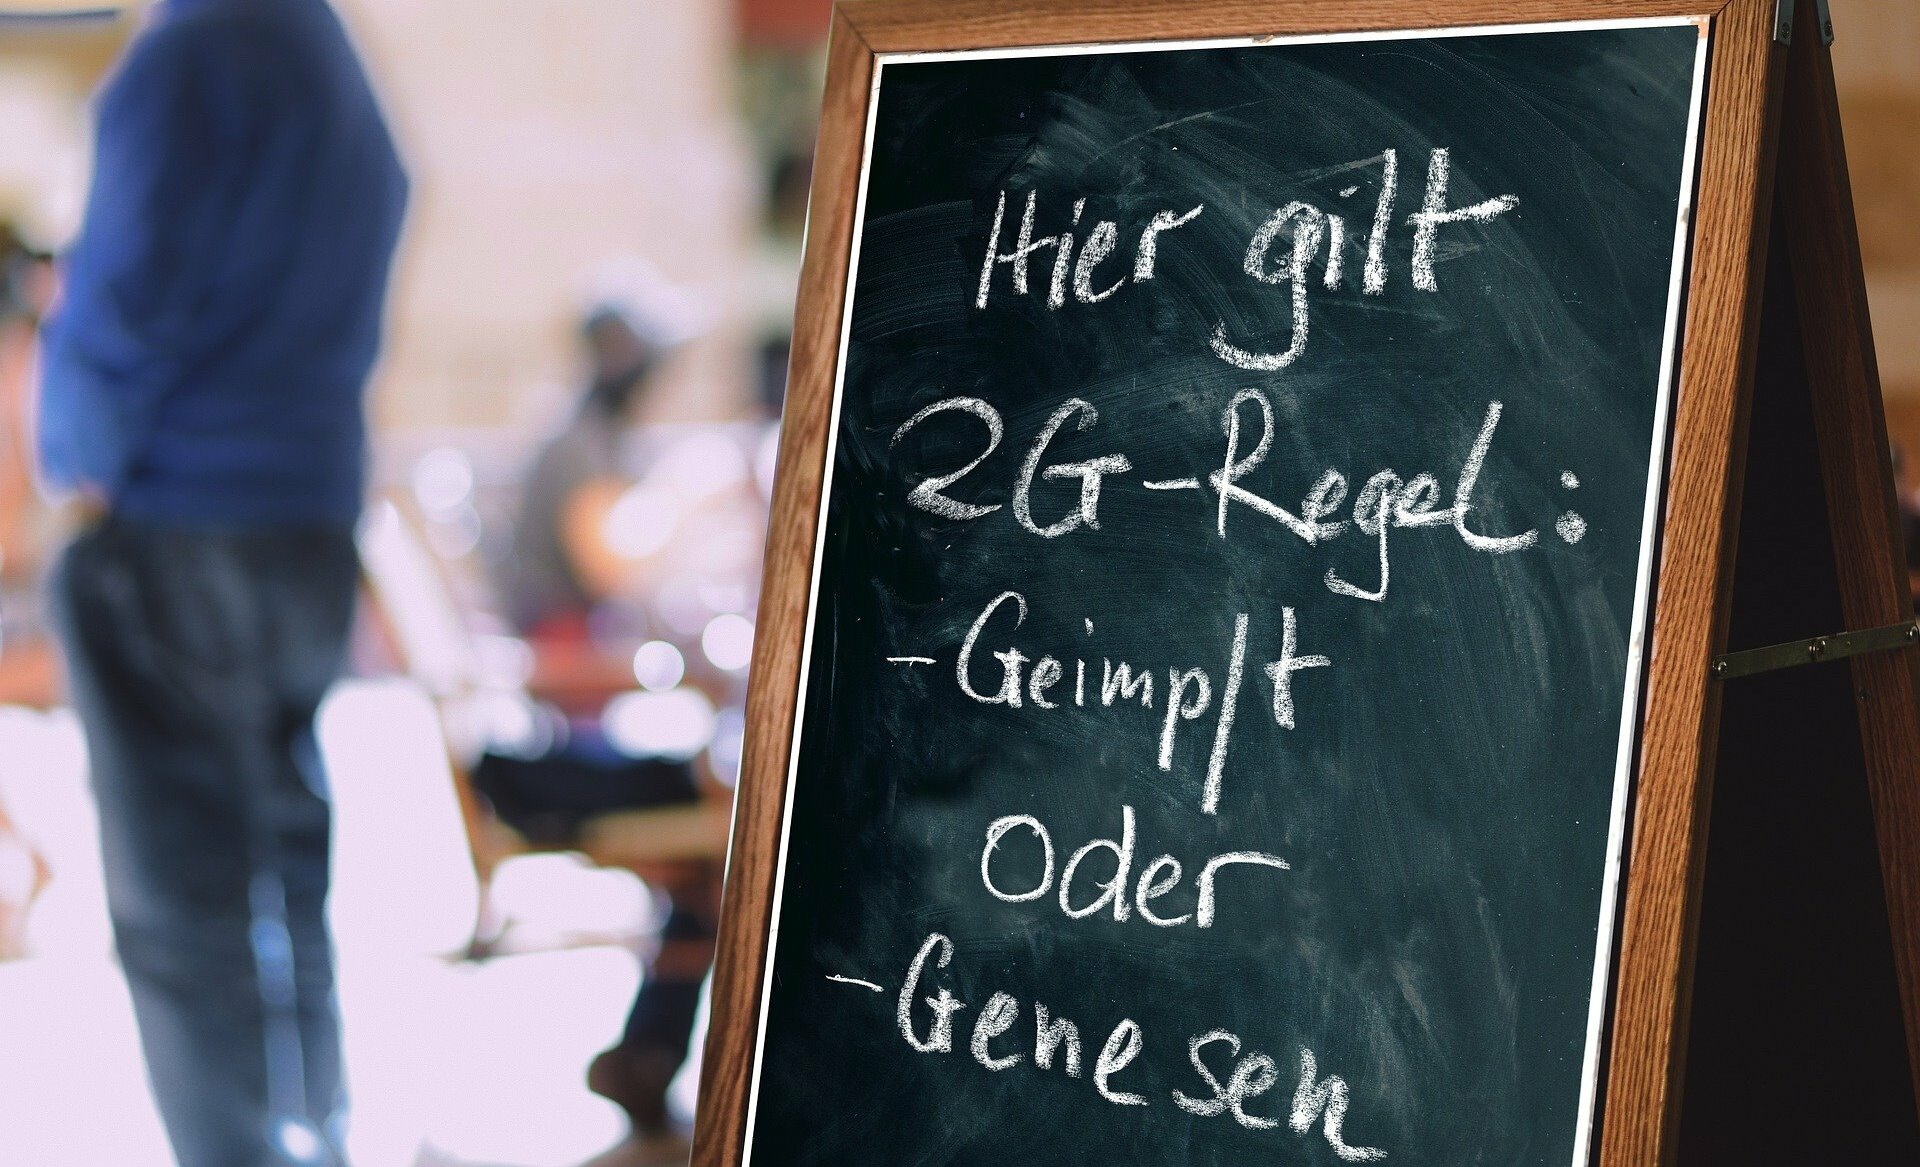 Hier gilt
2G-Regel:
- Geimpft
Oder
- Genesen